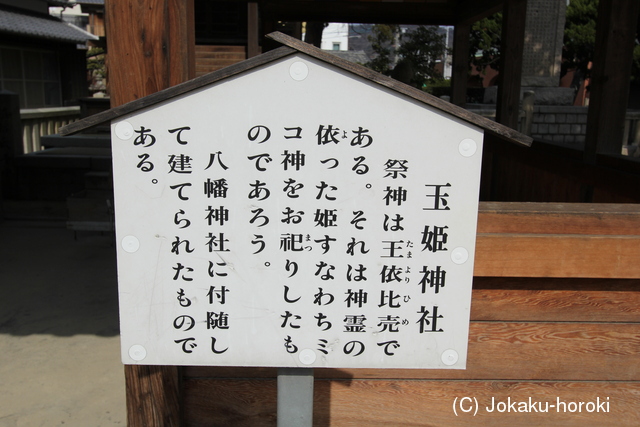 玉姫神社
祭神は玉依比売で
たまよりひめ
ある。それは神霊の
依った姫すなわちミ
よ
コ神をお祀りしたも
まつ
のであろう。
八幡神社に付随し
て建てられたもので
ある。
(C) Jokaku-horoki